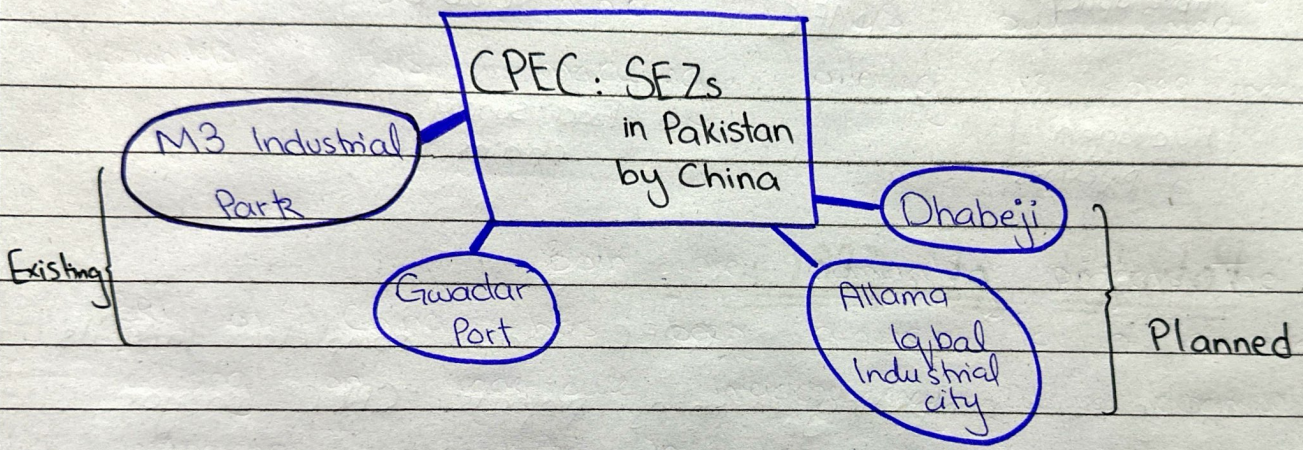 CPEC: SEZs
in Pakistan
by China
M3 Industrial
Park
Existing
Gwadar
Port
Dhabeji
Allama
Iqbal
Industrial
city
Planned